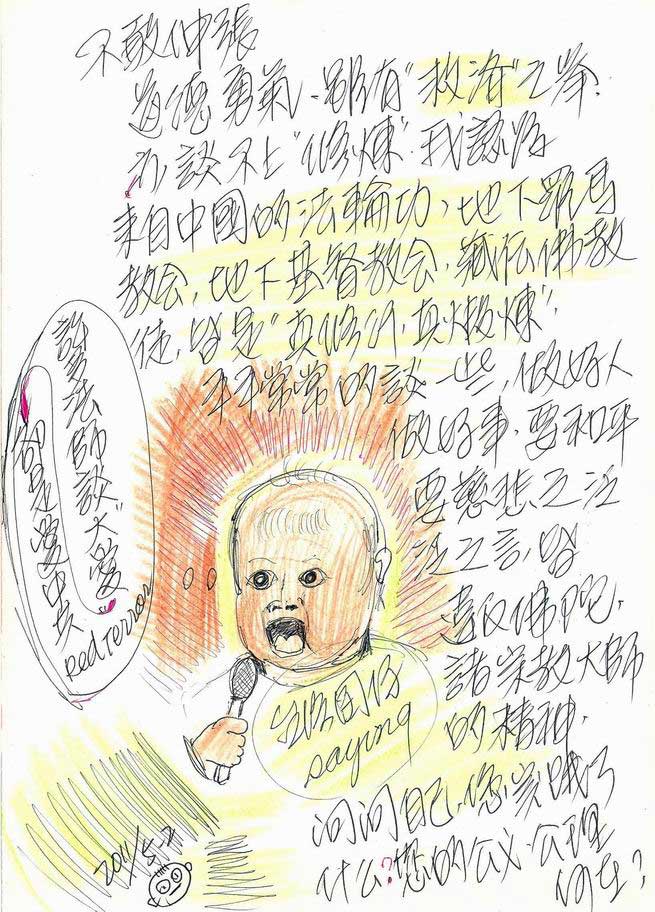 不敢伸張
道德勇氣、雖有"救濟"之舉.
亦談不上"修煉".我認為
來自中國的法輪功、地下羅馬
教会,地下基督教会,藏伝佛教
徒,皆是"真修行,真修煉".
平平常常的談一些,做好人
做好事.要和平
要慈悲之泛
泛之言,皆
違反佛陀.
諸宗教大師
的精神.
问问自己,您覚哦了
什么?您的公义、公理
何在?
證嚴法師談"大愛"
卻是愛中共
Red Terror
saying
2011/5.21